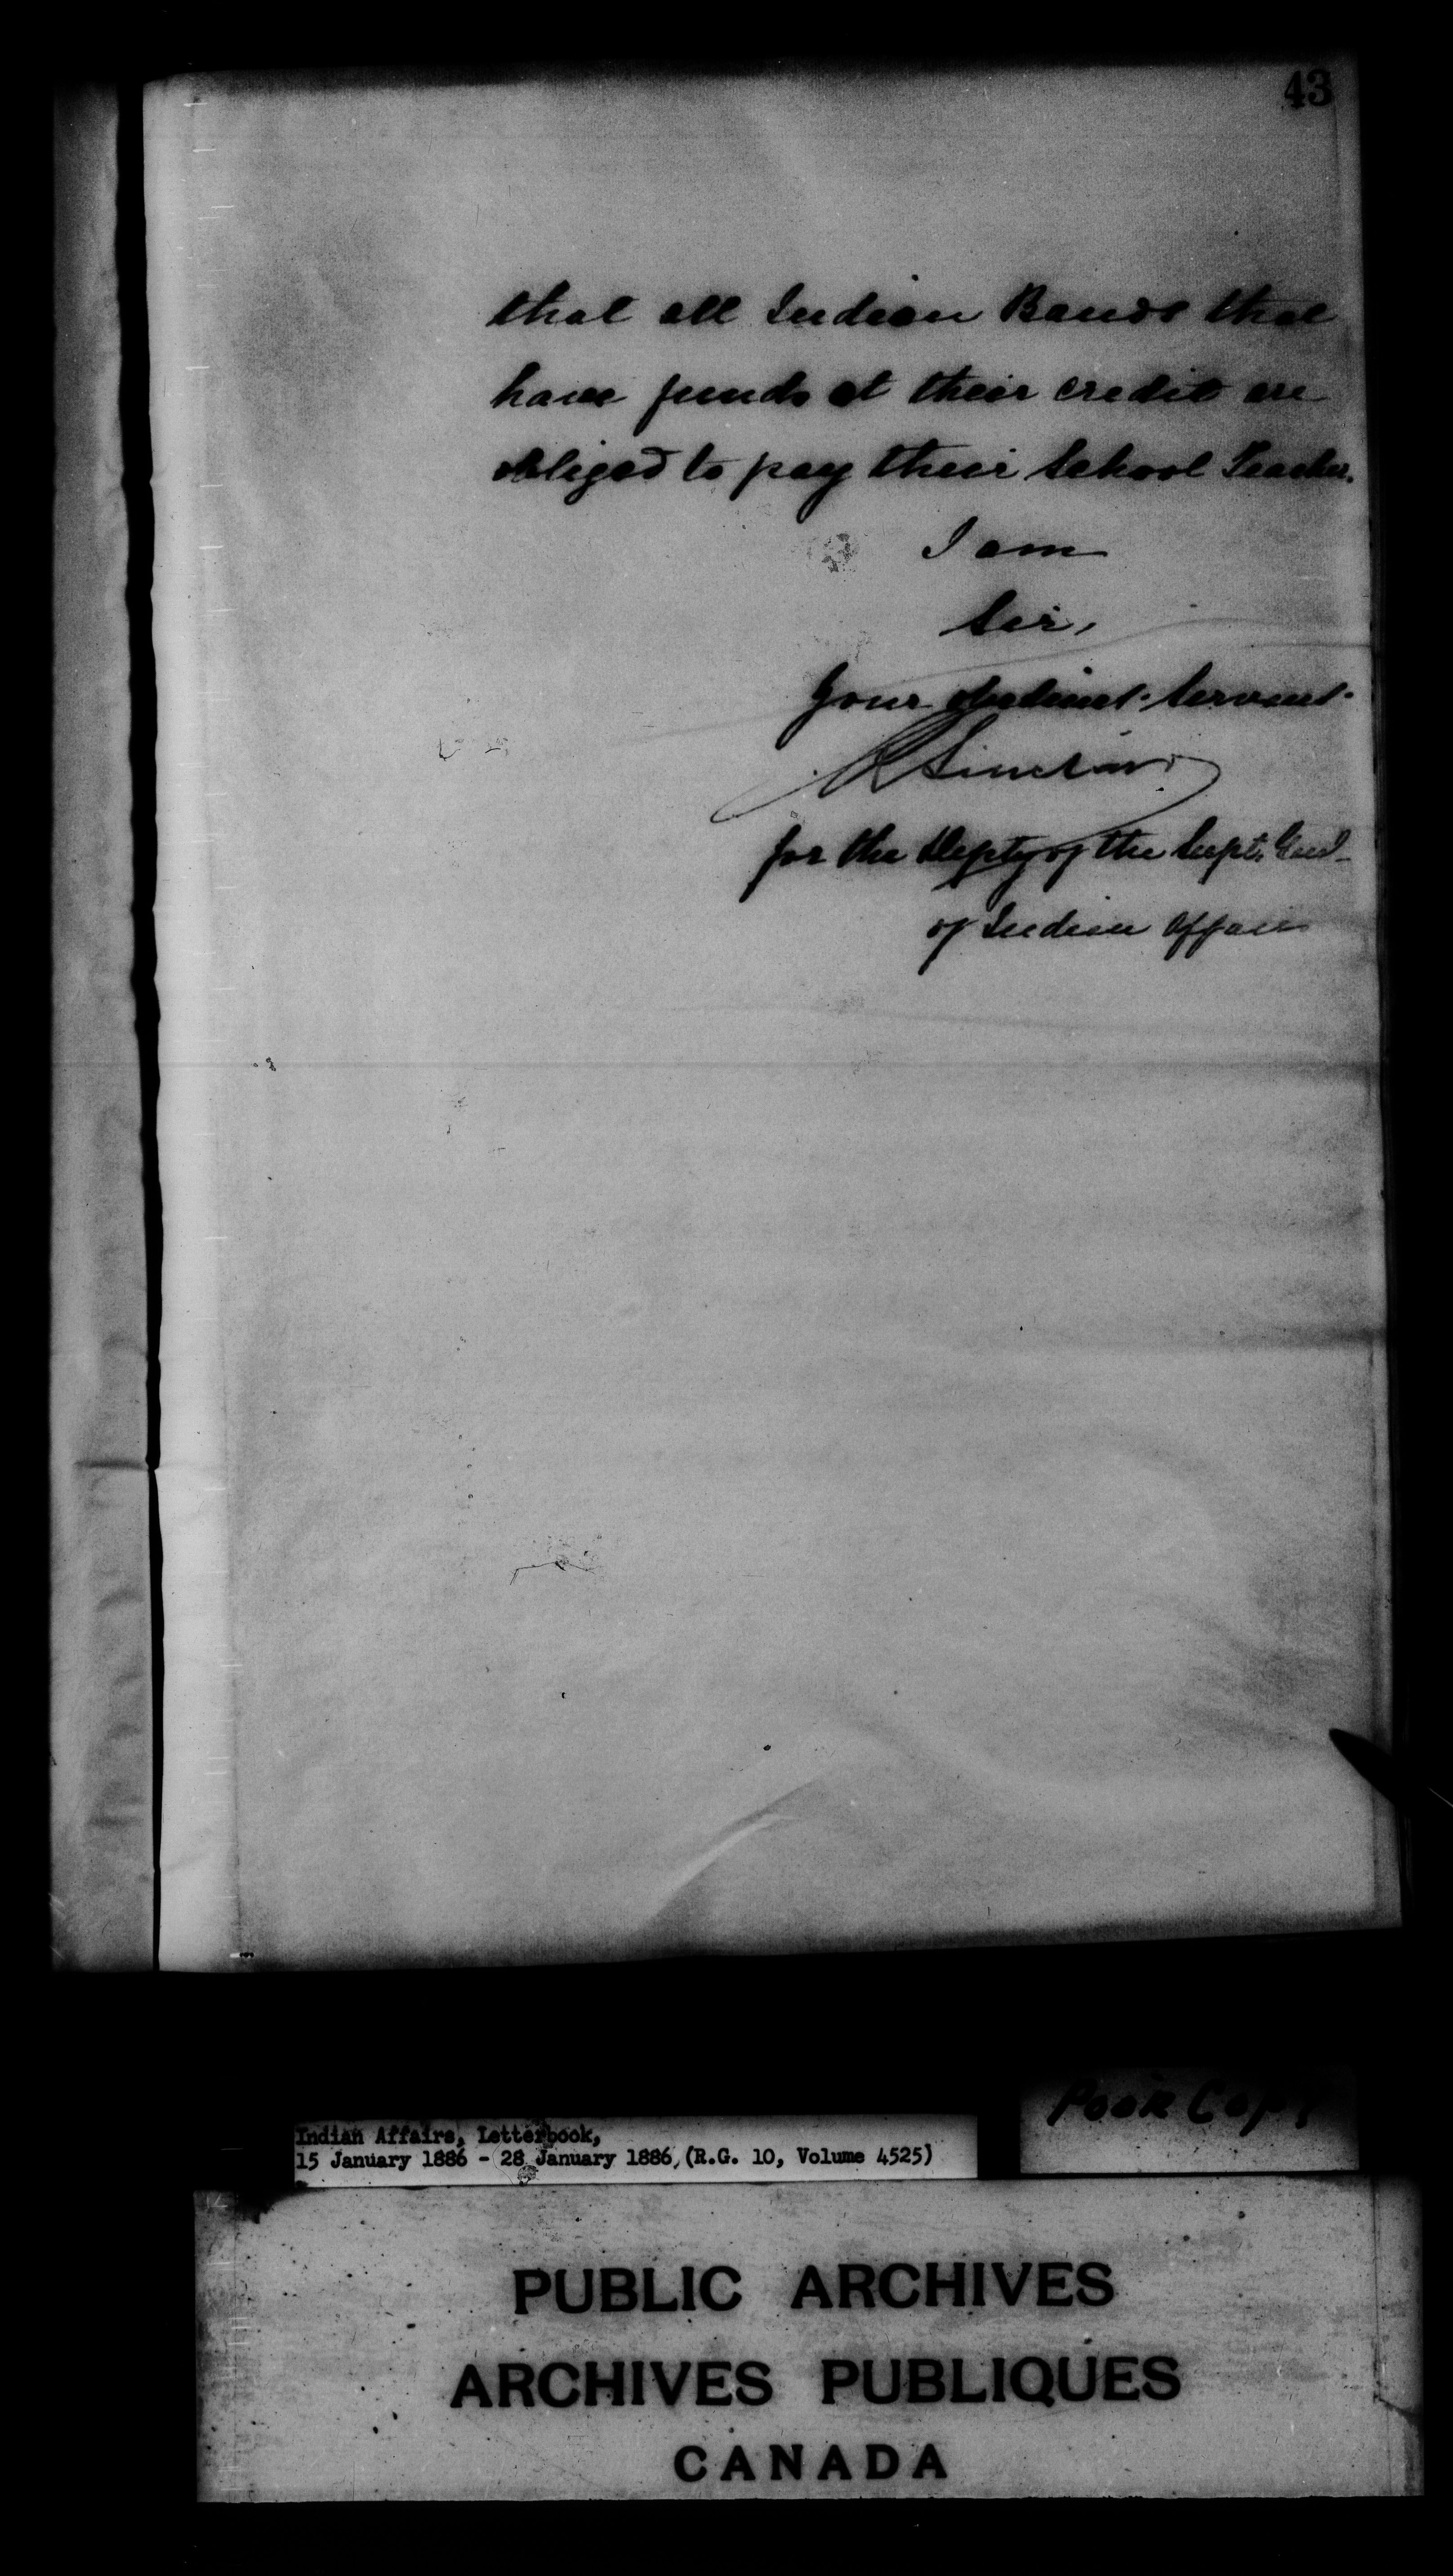 43
that all Indian Bands that
have funds at their credit are
obliged to pay their School Teacher.
I am
Sir,
Your obedient Servant
R Sinclair
for the Depty of the Supt. Genl
of Indian Affairs
Poor Copy
Indian Affairs, Letterbook,
15 January 1886 - 28 January 1886, (R.G. 10, Volume 4525)
PUBLIC ARCHIVES
ARCHIVES PUBLIQUES
CANADA